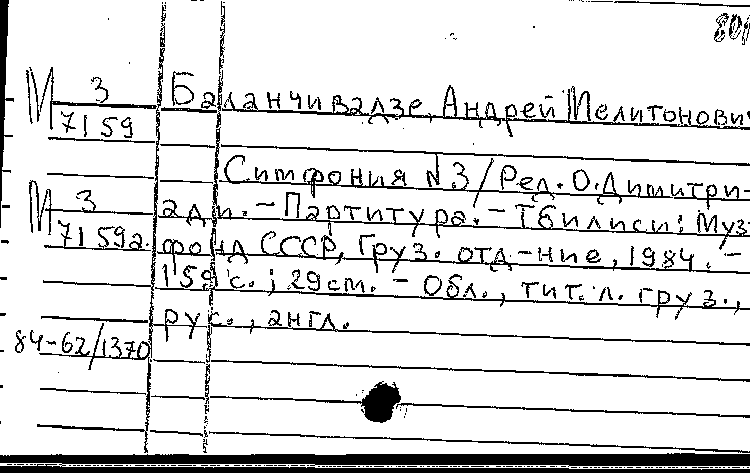 801
М 3/7159
Баланчивадзе, Андрей Мелитонович
Симфония №3 / Ред. О. Димитри-
М 3/7159а.
ади. – Партитура. – Тбилиси: Муз.
фонд СССР, Груз. отд-ние, 1984. –
159 с.; 29 см. – Обл., тит. л. груз.,
рус., англ.
84-62/1370